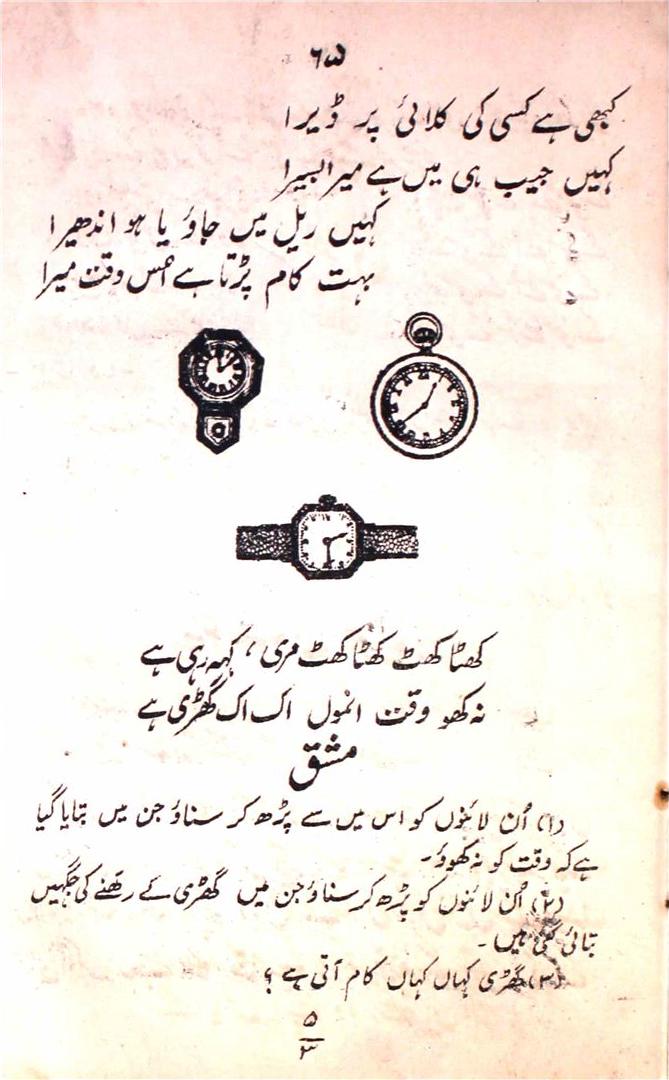 ۶۵
کبھی ہے کسی کی کلائی پر ڈیرا
کہیں جیب ہی میں ہے میرا بسیرا
کہیں ریل میں جاؤ یا ہو اندھیرا
بہت کام پڑتا ہے اس وقت میرا
کھٹا کھٹ کھٹا کھٹ مری، کہہ رہی ہے
نہ کھو وقت انمول اک اک گھڑی ہے
مشق
(۱) اُن لائنوں کو اس میں سے پڑھ کر سناؤ جن میں بتایا گیا
ہے کہ وقت کو نہ کھوؤ۔
(۲) اُن لائنوں کو پڑھ کر سناؤ جن میں گھڑی کے رکھنے کی جگہیں
بتائی گئی ہیں۔
(۳) گھڑی کہاں کہاں کام آتی ہے؟
۵
۳